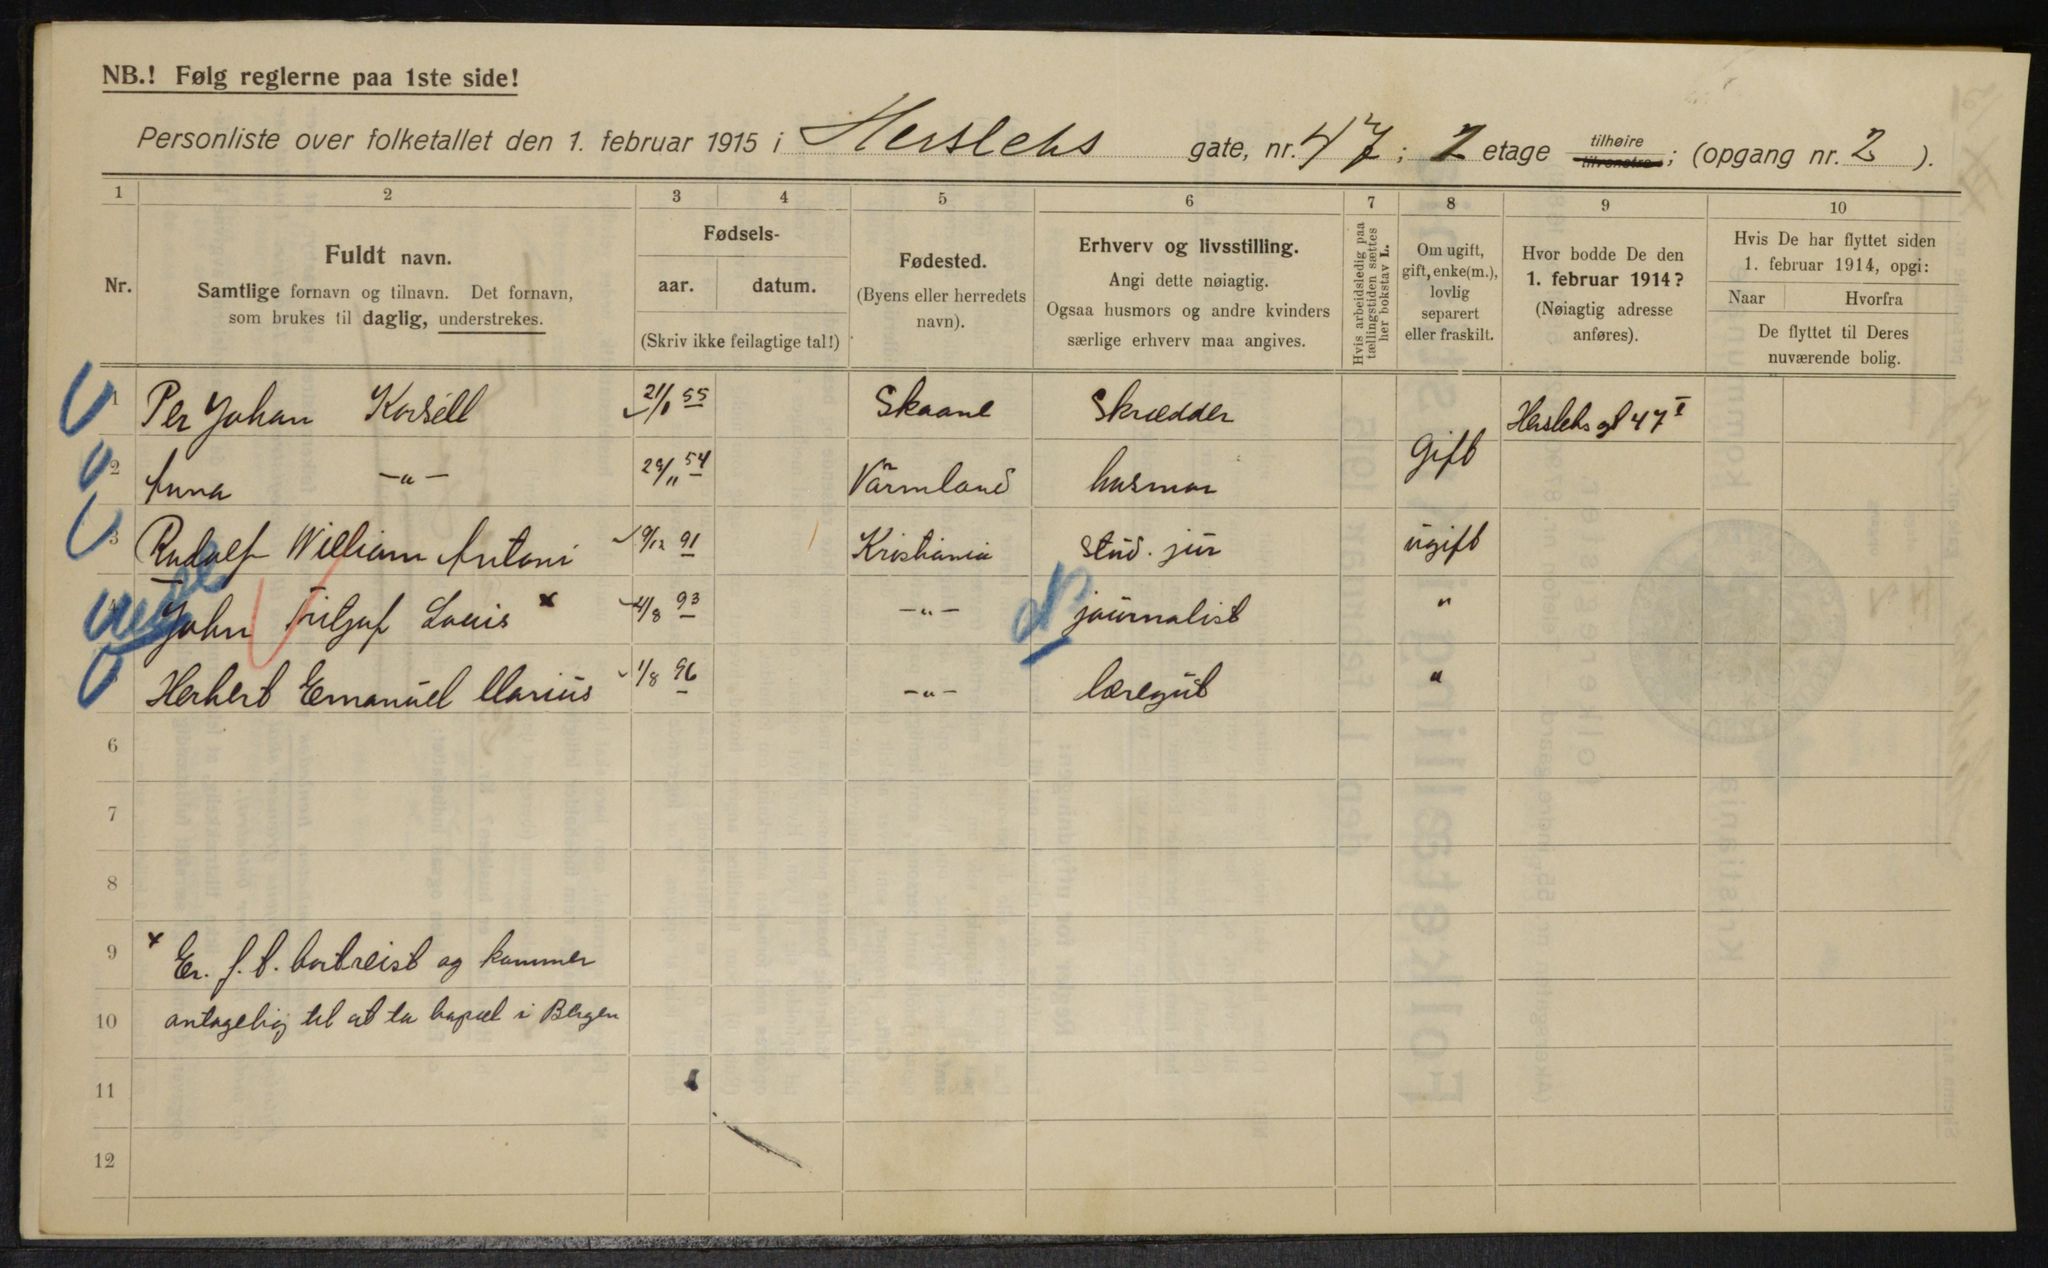 NB.! Følg reglerne paa 1ste side!
Personliste over folketallet den 1. februar 1915 i Herslebs gate, nr. 47; 2 etage tilhøire tilvenstre; (opgang nr. 2 ).
1 2 3 4 5 6 7 8 9 10
Nr.
Fuldt navn.
Samtlige fornavn og tilnavn. Det fornavn,
som brukes til daglig, understrekes.
Fødsels-
aar. datum.
(Skriv ikke feilagtige tal!)
Fødested.
(Byens eller herredets
navn).
Erhverv og livsstilling.
Angi dette nøiagtig.
Ogsaa husmors og andre kvinders
særlige erhverv maa angives.
Hvis arbeidsledig paa
tællingstiden sættes
her bokstav L.
Om ugift,
gift, enke(m.),
lovlig
separert
eller fraskilt.
Hvor bodde De den
1. februar 1914?
(Nøiagtig adresse
anføres).
Hvis De har flyttet siden
1. februar 1914, opgi:
Naar Hvorfra
De flyttet til Deres
nuværende bolig.
1 Per Johan Korséll 55 Skaane Skrædder Herslebs gt 47 I
2 Anna —„— 29/11 54 Värmland husmor Gift
3 Rudolf William Antoni 19/12 91 Kristiania stud. jur ugift
4 John Fritjof Louis x 4/8 93 —„— journalist „
5 Herbert Emanuel Marius 1/8 96 —„— læregut „
6
7
8
9 x Er. f. t. bortreist og kommer
10 antagelig til at ta bopæl i Bergen
11
12